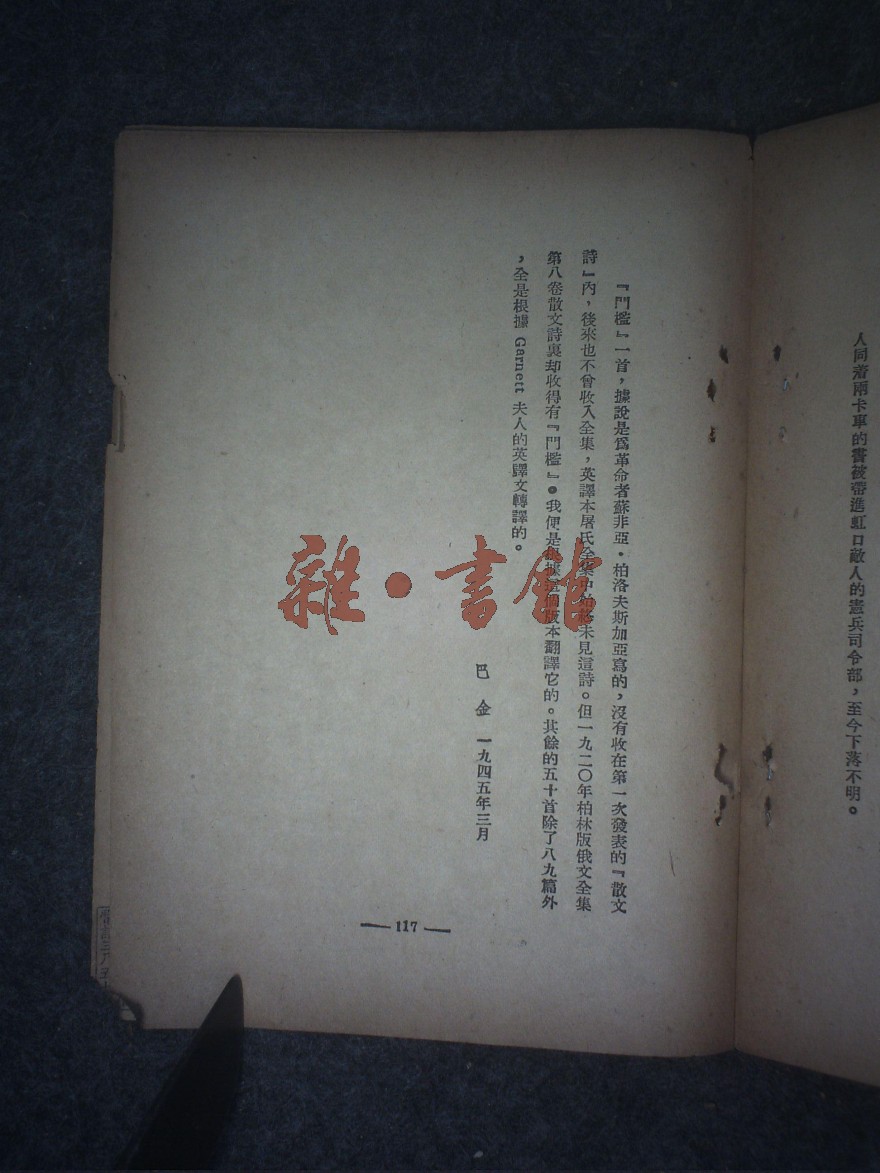 人同着兩卡車的書被帶進虹口敵人的憲兵司令部，至今下落不明。
『門檻』一首，據說是爲革命者蘇非亞·柏洛夫斯加亞寫的，沒有收在第一次發表的『散文
詩』內，後來也不曾收入全集，英譯本屠氏全集中始終未見這詩。但一九二〇年柏林版俄文全集
第八卷散文詩裏却收得有『門檻』。我便是根據這個版本翻譯它的。其餘的五十首除了八九篇外
，全是根據 Garnett 夫人的英譯文轉譯的。
巴金 一九四五年三月
— 117 —
雜·書館